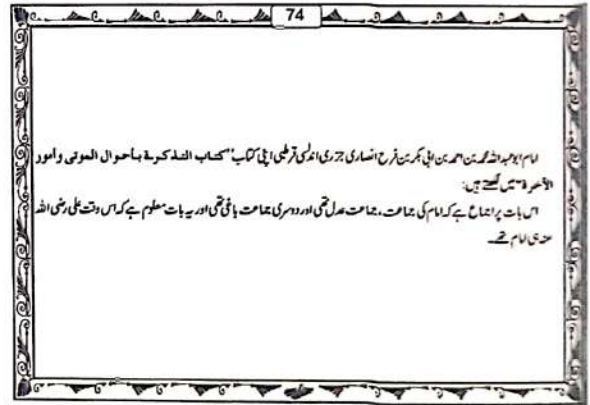 74
امام ابوعبداللہ محمد بن احمد بن ابی بکر بن فرح انصاری خزرجی اندلسی قرطبی اپنی کتاب "کتاب التذکرة بأحوال الموتى وأمور
الآخرة" میں لکھتے ہیں:
اس بات پر اجماع ہے کہ امام کی جماعت، جماعت عدل تھی اور دوسری جماعت باغی تھی اور یہ بات معلوم ہے کہ اس وقت علی رضی اللہ
عنہ ہی امام تھے۔